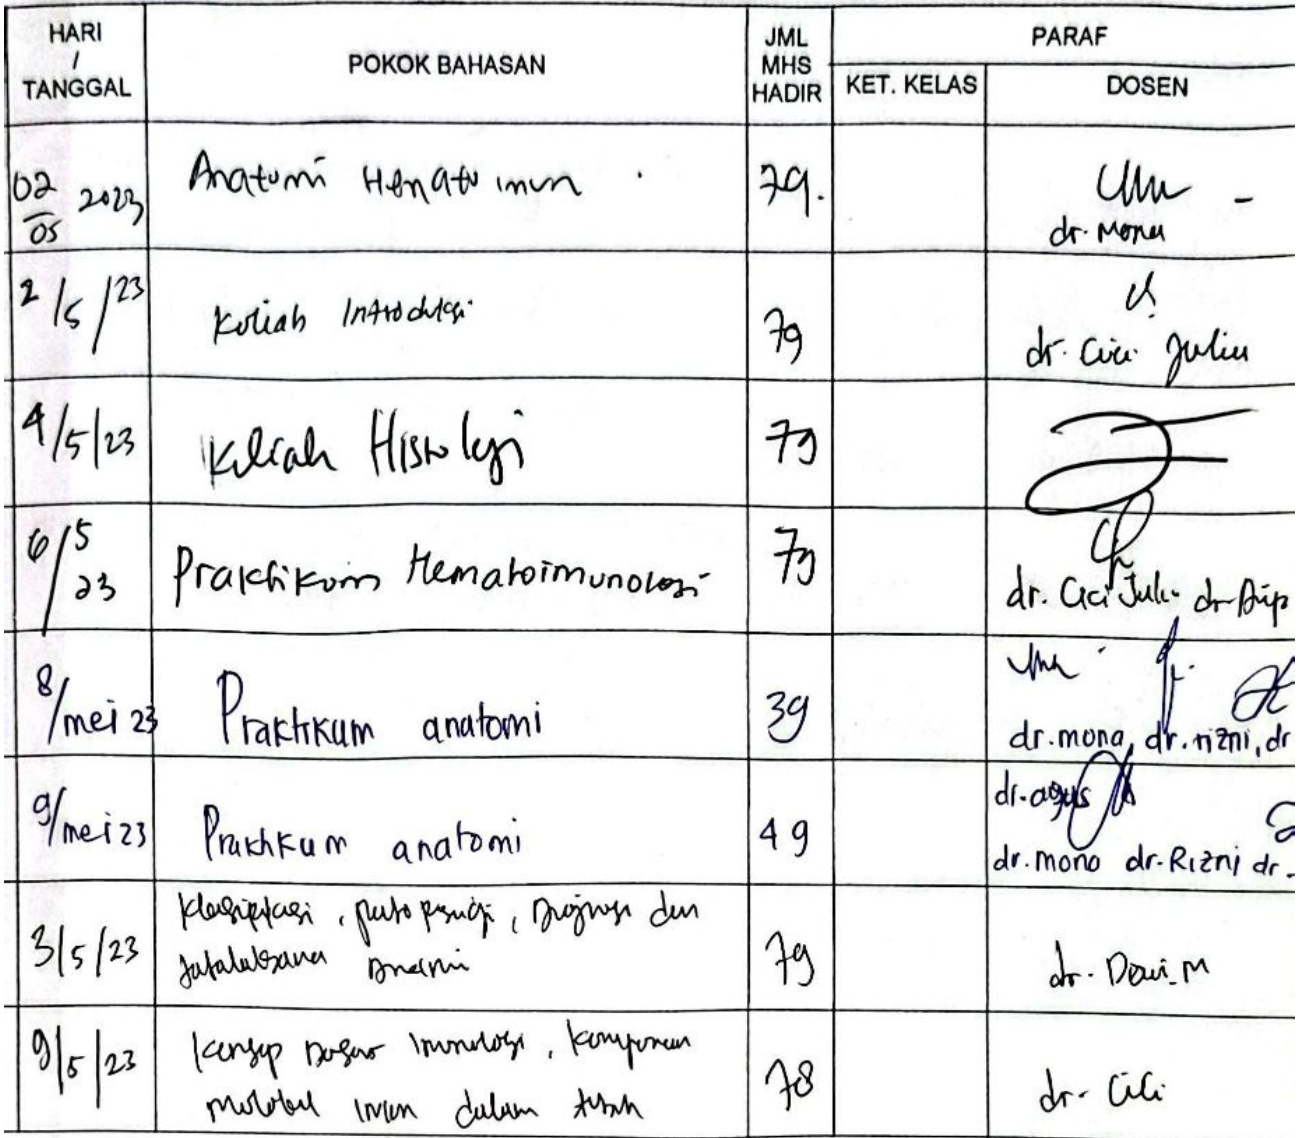 HARI
/
TANGGAL
POKOK BAHASAN
JML
MHS
HADIR
PARAF
KET. KELAS
DOSEN
02
05 2023
Anatomi Hematoimun
79.
dr. Mona
2/5/23
Kuliah Introduksi
79
dr. Cici Julia
4/5/23
Kuliah Histologi
79
6/5
23
Praktikum Hematoimunologi
79
dr. Cici Juli dr
8/mei 23
Praktikum anatomi
39
dr. mona, dr. rizni, dr
9/mei 23
Praktikum anatomi
49
dr. agus
dr. mona dr. Rizni dr.
3/5/23
Klasifikasi, patofisiologi, Diagnosis dan
tatalaksana Anemi
79
dr. Dewi. M
9/5/23
Konsep Dasar Imunologi, Komponen
imun dalam tubuh
78
dr. Cici